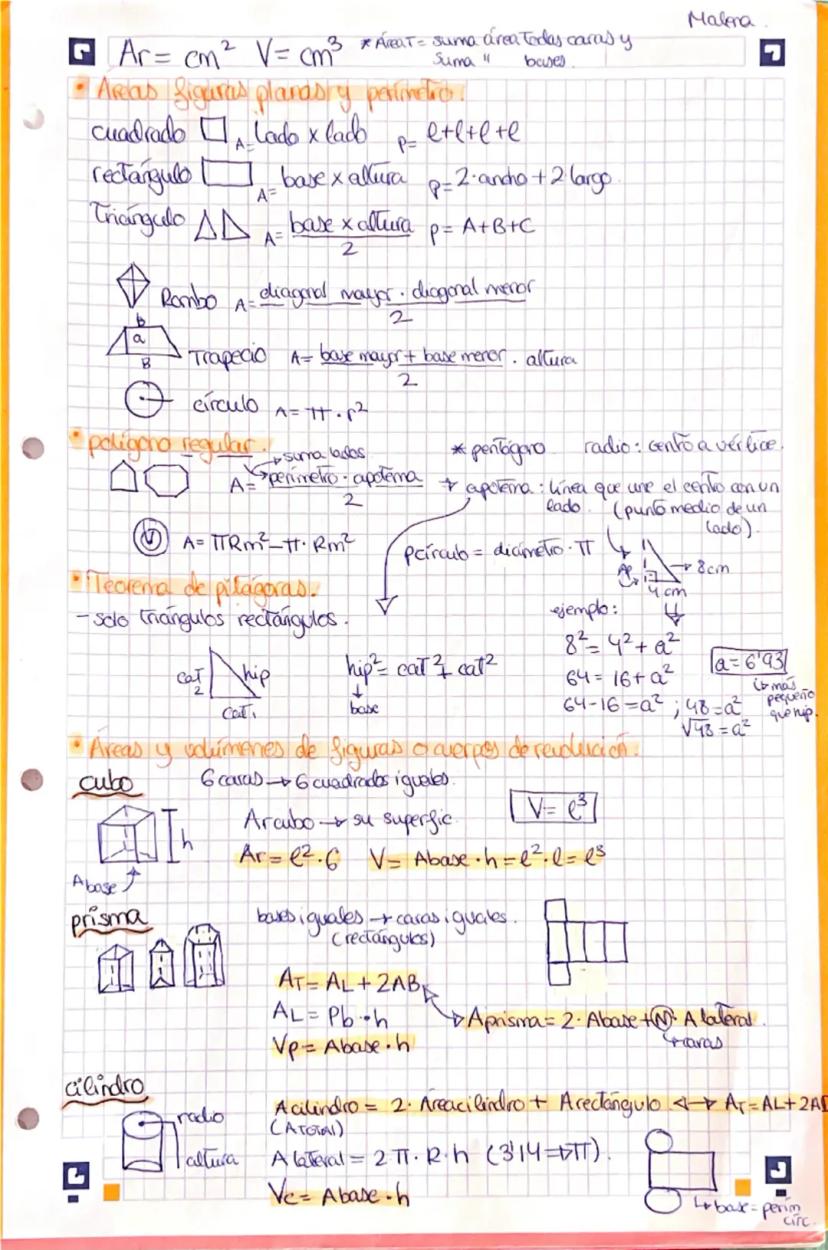 Malena.
Ar = cm² V = cm³ * ÁreaT = suma área todas caras y
suma " bases.
• Áreas figuras planas y perímetro.
cuadrado A = lado x lado p = l+l+l+l
rectángulo A = base x altura p = 2·ancho + 2 largo.
Triángulo A = base x altura / 2 p = A+B+C
Rombo A = diagonal mayor · diagonal menor / 2
b
a
B
Trapecio A = base mayor + base menor / 2 · altura
círculo A = π · r²
• polígono regular. * pentágono radio: centro a vértice.
suma lados
A = perímetro · apotema / 2 * apotema: línea que une el centro con un
lado. (punto medio de un
lado).
A = πRm² − π · Rm² pcírculo = diámetro · π
Ap 8cm
4cm
• Teorema de pitágoras.
- solo triángulos rectángulos.
cat 2 hip
cat 1
hip² = cat² + cat²
base
ejemplo:
8² = 4² + a²
64 = 16 + a²
64 - 16 = a² ; 48 = a²
√48 = a²
a = 6'93
más
pequeño
que hip.
• Áreas y volúmenes de figuras o cuerpos de revolución.
cubo 6 caras → 6 cuadrados iguales.
h
Abase
Ar cubo → su superfic. V = l³
Ar = l² · 6 V = Abase · h = l² · l = l³
prisma bases iguales → caras iguales.
(rectángulos)
AT = AL + 2AB
AL = Pb · h Aprisma = 2 · Abase + N · A lateral.
caras
Vp = Abase · h
cilindro
radio
altura
A cilindro = 2 · Áreacilindro + A rectángulo ↔ AT = AL + 2A
(A TOTAL)
A lateral = 2 π · R · h (3'14 ⇒ π).
Vc = Abase · h
base = perím
circ.